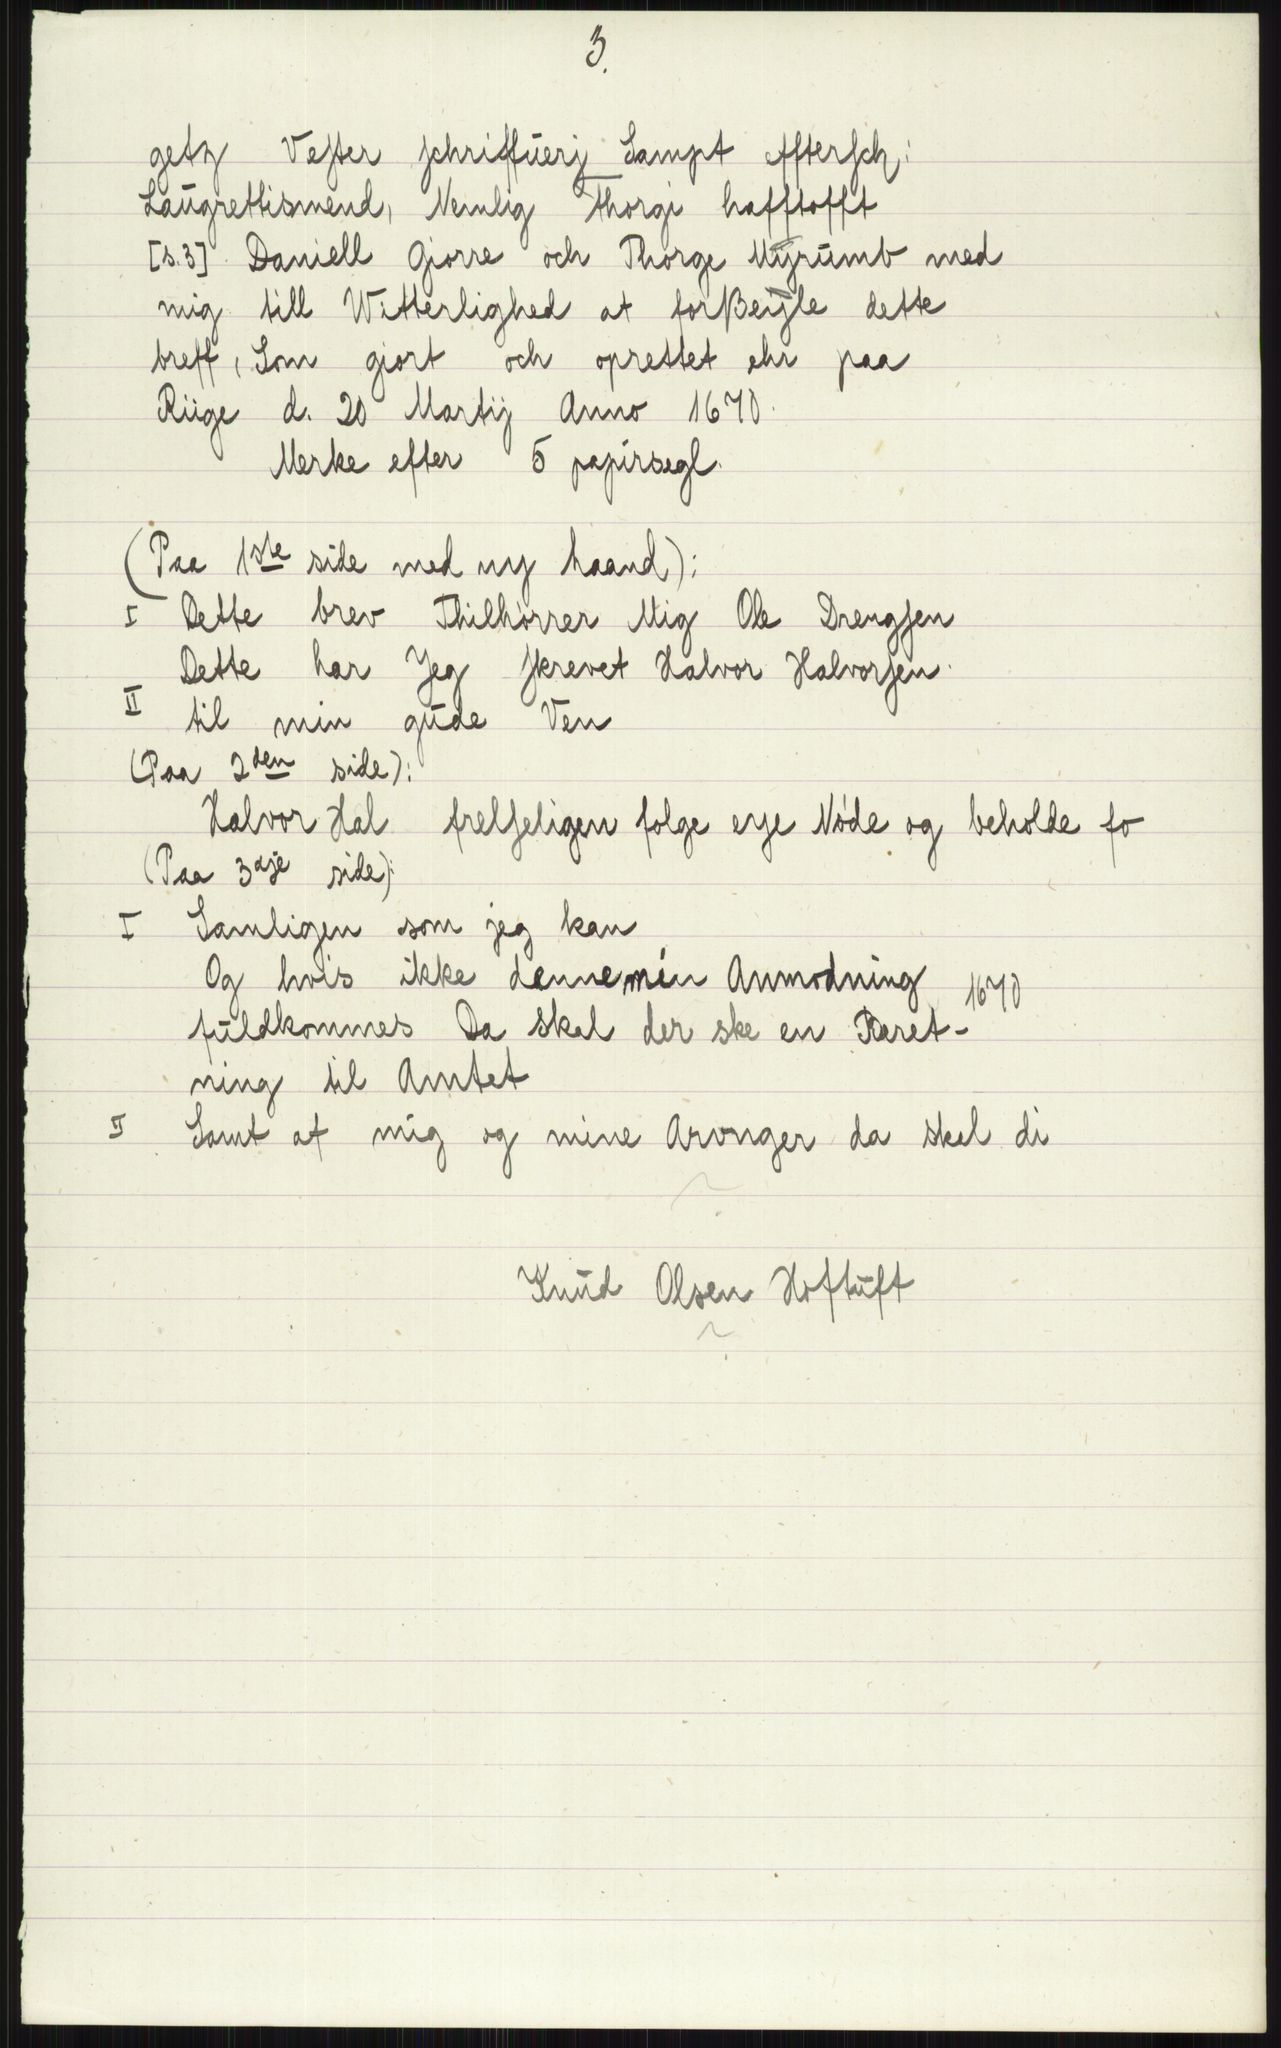 3.
getz Vester schriffuerj Sampt effterſch:
Laugrettismend, Nemlig Thorgi hafftofft
[s.3] Daniell Giorre och Thorge Myrumb med
mig till Witterlighed at forßeigle dette
breff, Som giort och oprettet ehr paa
Riige d. 20 Martij Anno 1670.
Merke efter 5 papirsegl.
(Paa 1ste side med ny haand):
I Dette brev Thilhørrer Mig Ole Drengſen
Dette har Jeg ſkrevet Halvor Halvorſen.
II til min gude Ven
(Paa 2den side):
Halvor Hal frelſeligen folge eye Nøde og beholde fo
(Paa 3dje side):
I Samligen som jeg kan
Og hvis ikke denne min Anmodning 1670
fuldkommes Da skal der ske en Raret-
ning til Amtet
II Samt af mig og mine Arvnger da skal di
Knud Olsen Hoftuft